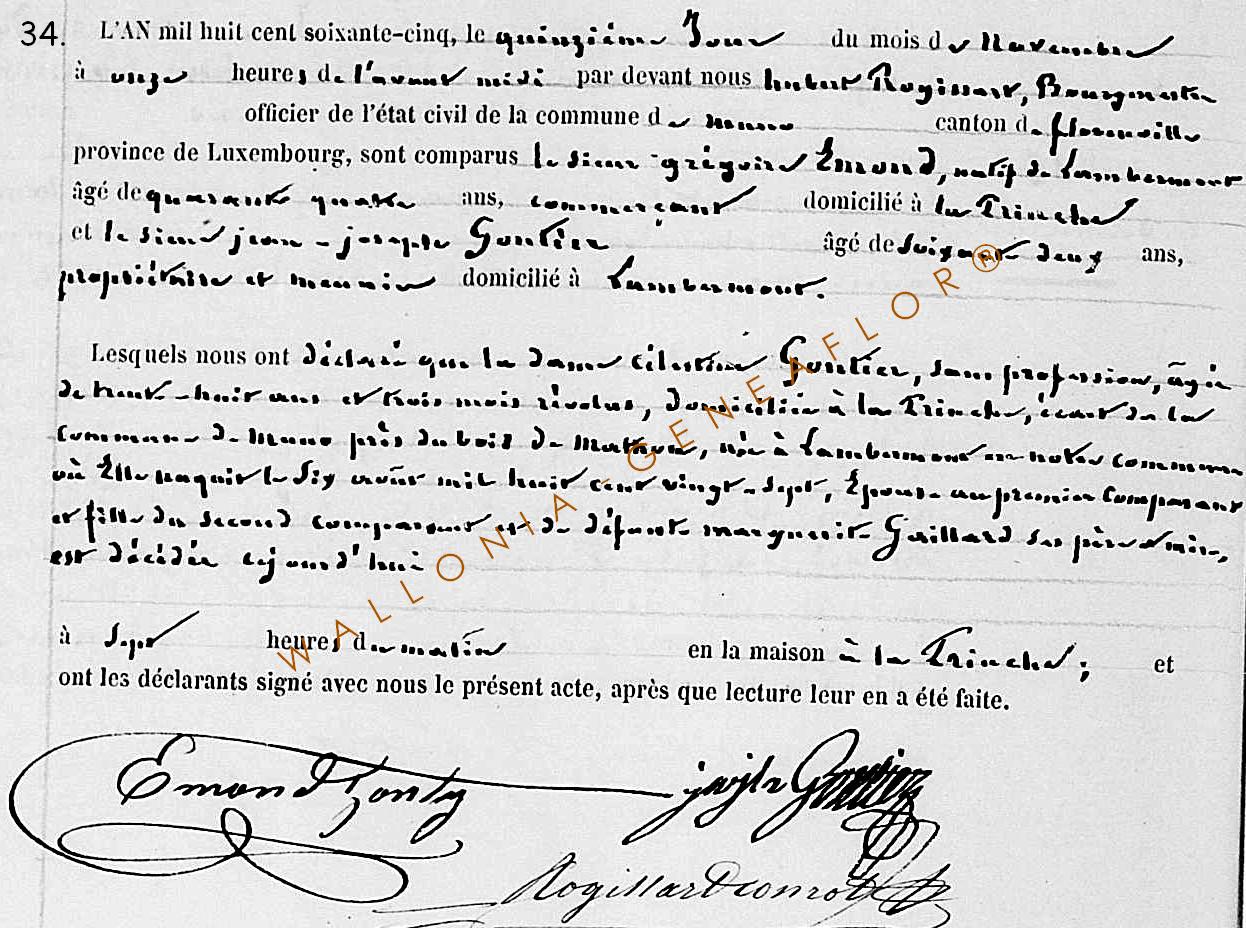 34. L'AN mil huit cent soixante-cinq, le quinzième Jour du mois de Novembre
à onze heures de l'avant midi par devant nous hubert Rogissart, Bourgmestre
officier de l'état civil de la commune de muno canton de florenville
province de Luxembourg, sont comparus le sieur grégoire Emond, natif de Lambermont
âgé de quarante quatre ans, commerçant domicilié à la Trinché
et le sieur jean-joseph Gontier âgé de soixante deux ans,
propriétaire et meunier domicilié à Lambermont.
Lesquels nous ont déclaré que la dame célestine Gontier, sans profession, âgée
de trente-huit ans et trois mois révolus, domiciliée à la Trinché, écart de la
commune de Muno près du bois de, née à Lambermont en notre commune
où Elle naquit le Six août mil huit cent vingt-sept, Epouse au premier Comparant
et fille du second comparant et de défunte marguerite Gaillard ses père et mère,
est décédée cejourd'hui
à Sept heures du matin en la maison à la Trinché; et
ont les déclarants signé avec nous le présent acte, après que lecture leur en a été faite.
Emond Gonty
joseph Gontier
Rogissart
WALLONIA-GENEAFLOR®